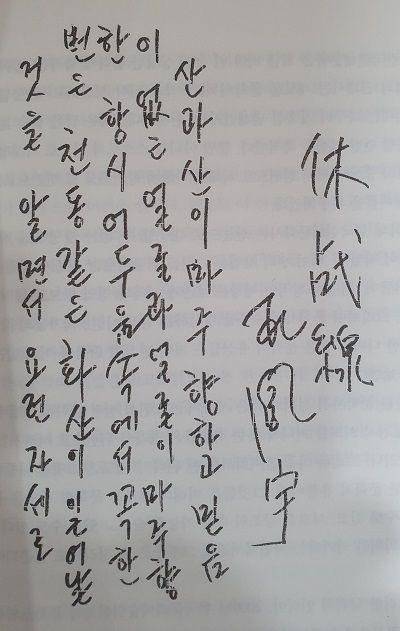 休战線
朴鳳宇
산과 산이 마주 향하고 믿음
이 없는 얼굴과 얼굴이 마주 향
한 항시 어두움 속에서 꼭 한
번은 천동 같은 화산이 일어날
것을 알면서 요런 자세로